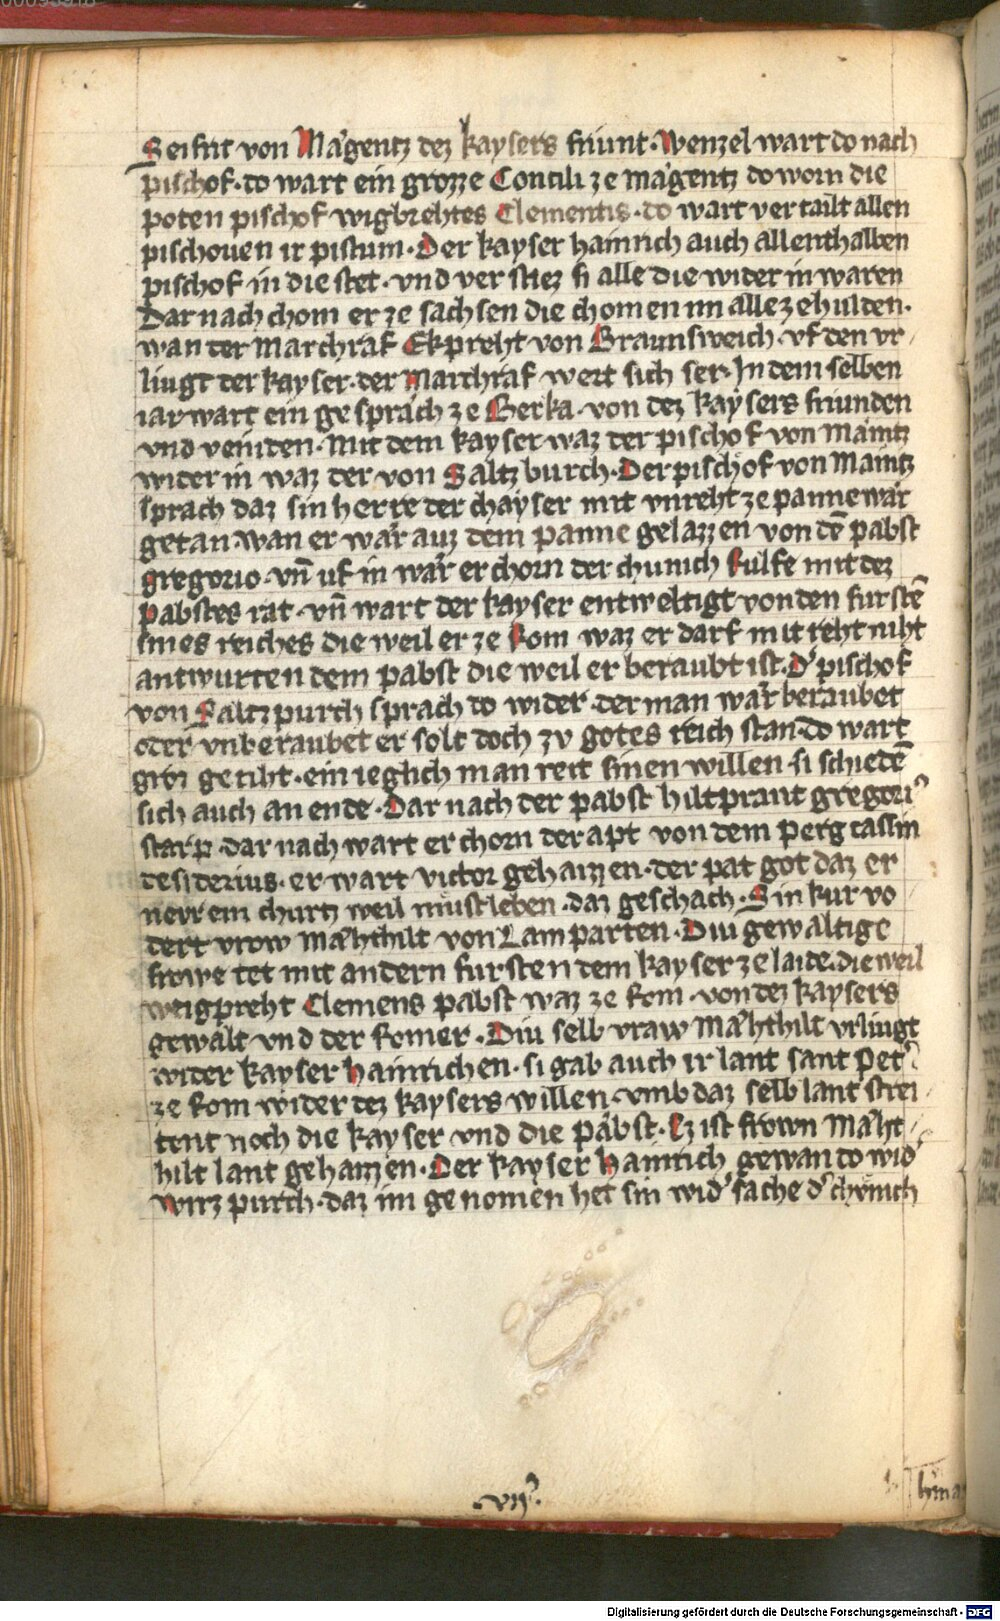 Seifrit von Magentz dez kaysers friunt. Wenzel wart do nach
pischof. do wart ein grozze Concili ze magentz do worn die
poten pischof wigbrehtes Clementis. do wart vertailt allen
pischouen ir pistum. Der kayser hainrich auch allenthalben
pischof in die stet. vnd verstiez si alle die wider in waren
Dar nach chom er ze sachsen die chomen im alle ze hulden.
wan der Marchraf Ekpreht von Braunsweich. vf den vr
liugt der kayser. der Marchraf wert sich ser. In dem selben
iar wart ein gespräch ze Berka. von dez kaysers friunden
vnd veinden. Mit dem kayser waz der pischof von Maintz
wider in waz der von Saltzburch. Der pischof von Maintz
sprach daz sin herre der chayser mit vnreht ze panne wär
getan. wan er wär auz dem panne gelazzen von dē pabst
gregorio. vn̄ uf in wär erchorn der chunich Rulfe mit dez
pabstes rat. vn̄ wart der kayser entweltigt von den furstē
sines reiches die weil er ze Rom waz er darf mit reht niht
antwurten dem pabst die weil er beraubt ist. D' pischof
von Saltzpurch sprach do wider. der man wär beraubet
oder vnberaubet er solt doch zv gotes reich stan. do wart
geriht. ein ieglich man reit sinen willen. si schiedē
sich auch an ende. Dar nach der pabst hiltprant gregori'
starp. dar nach wart erchorn der apt von dem perg cassin
desiderius. er wart victor gehaizzen. der pat got daz er
nevr ein churtz weil müst leben. daz geschach. Sin kur vo
dert vrow Mæhthilt von Lamparten. Diu gewaltige
frowe tet mit andern fursten dem kayser ze laide. die weil
weigpreht Clemens pabst waz ze Rom. von dez kaysers
gewalt vnd der Romer. Diu selb vraw Mæhthilt vrliugt
wider kayser hainrichen. si gab auch ir lant sant Pet'
ze Rom wider dez kaysers willen. vmb daz selb lant strei
tent noch die kayser vnd die päbst. Ez ist frown Mæht
hilt lant gehaizzen. Der kayser hainrich gewan do wid'
wirzpurch. daz im genomen het sin wid'sache d' chvnich
.vij.